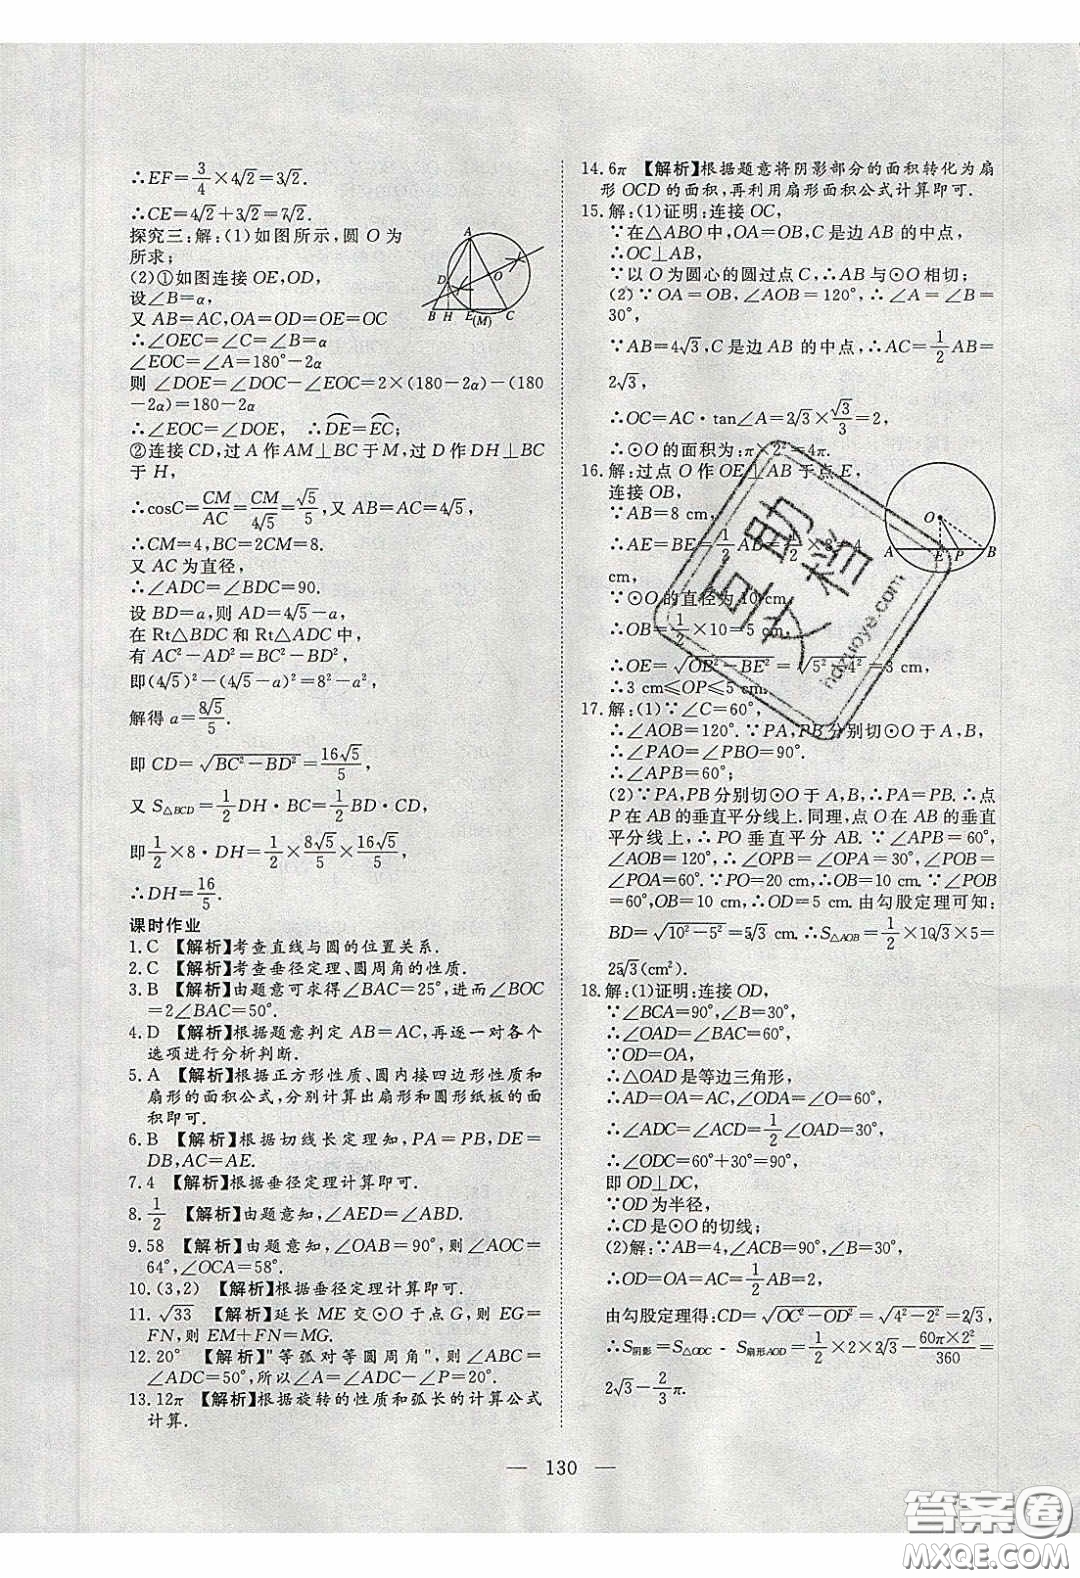 ∴EF=3/4×4√2=3√2.
∴CE=4√2+3√2=7√2.
探究三:解:(1)如图所示,圆 O 为
所求;
(2)①如图连接 OE,OD,
设∠B=α,
又 AB=AC,OA=OD=OE=OC
∴∠OEC=∠C=∠B=α
∠EOC=∠A=180°-2α
则 ∠DOE=∠DOC-∠EOC=2×(180-2α)-(180
-2α)=180-2α
∴∠EOC=∠DOE, ∴DE=EC;
②连接 CD,过 A 作 AM⊥BC 于 M,过 D 作 DH⊥BC
于 H,
∴cosC=CM/AC=CM/4√5=√5/5,又 AB=AC=4√5,
∴CM=4,BC=2CM=8.
又 AC 为直径,
∴∠ADC=∠BDC=90.
设 BD=a,则 AD=4√5-a,
在 Rt△BDC 和 Rt△ADC 中,
有 AC²-AD²=BC²-BD²,
即(4√5)²-(4√5-a)²=8²-a²,
解得 a=8√5/5.
即 CD=√(BC²-BD²)=16√5/5,
又 S△BCD=1/2DH·BC=1/2BD·CD,
即1/2×8·DH=1/2×8√5/5×16√5/5,
∴DH=16/5.
课时作业
1.C 【解析】考查直线与圆的位置关系.
2.C 【解析】考查垂径定理、圆周角的性质.
3.B 【解析】由题意可求得∠BAC=25°,进而∠BOC
=2∠BAC=50°.
4.D 【解析】根据题意判定 AB=AC,再逐一对各个
选项进行分析判断.
5.A 【解析】根据正方形性质、圆内接四边形性质和
扇形的面积公式,分别计算出扇形和圆形纸板的面
积即可.
6.B 【解析】根据切线长定理知,PA=PB,DE=
DB,AC=AE.
7.4 【解析】根据垂径定理计算即可.
8.1/2 【解析】由题意知,∠AED=∠ABD.
9.58 【解析】由题意知,∠OAB=90°,则∠AOC=
64°,∠OCA=58°.
10.(3,2) 【解析】根据垂径定理计算即可.
11.√33 【解析】延长 ME 交⊙O 于点 G,则 EG=
FN,则 EM+FN=MG.
12.20° 【解析】"等弧对等圆周角",则∠ABC=
∠ADC=50°,所以∠A=∠ADC-∠P=20°.
13.12π 【解析】根据旋转的性质和弧长的计算公式
计算.
A
D
O
B H E C
(M)
14.6π 【解析】根据题意将阴影部分的面积转化为扇
形 OCD 的面积,再利用扇形面积公式计算即可.
15.解:(1)证明:连接 OC,
∵在△ABO 中,OA=OB,C 是边 AB 的中点,
∴OC⊥AB,
∵以 O 为圆心的圆过点 C,∴AB 与⊙O 相切;
(2)∵OA=OB,∠AOB=120°,∴∠A=∠B=
30°,
∵AB=4√3,C 是边 AB 的中点,∴AC=1/2AB=
2√3,
∴OC=AC·tan∠A=2√3×√3/3=2,
∴⊙O 的面积为:π×2²=4π.
16.解:过点 O 作 OE⊥AB 于点 E,
连接 OB,
∵AB=8 cm,
∴AE=BE=1/2AB=1/2×8=4
cm,
∵⊙O 的直径为 10 cm,
∴OB=1/2×10=5 cm,
∴OE=√(OB²-BE²)=√(5²-4²)=3 cm,
∴3 cm≤OP≤5 cm.
O
A E P B
17.解:(1)∵∠C=60°,
∴∠AOB=120°.∵PA,PB 分别切⊙O 于 A,B,
∴∠PAO=∠PBO=90°.
∴∠APB=60°;
(2)∵PA,PB 分别切⊙O 于 A,B,∴PA=PB.∴点
P 在 AB 的垂直平分线上.同理,点 O 在 AB 的垂直
平分线上,∴PO 垂直平分 AB.∵∠APB=60°,
∠AOB=120°,∴∠OPB=∠OPA=30°,∠POB=
∠POA=60°.∵PO=20 cm,∴OB=10 cm.∵∠POB
=60°,OB=10 cm,∴OD=5 cm.由勾股定理可知:
BD=√(10²-5²)=5√3 cm.∴S△AOB=1/2×10√3×5=
25√3(cm²).
18.解:(1)证明:连接 OD,
∵∠BCA=90°,∠B=30°,
∴∠OAD=∠BAC=60°,
∵OD=OA,
∴△OAD 是等边三角形,
∴AD=OA=AC,∠ODA=∠O=60°,
∴∠ADC=∠ACD=1/2∠OAD=30°,
∴∠ODC=60°+30°=90°,
即 OD⊥DC,
∵OD 为半径,
∴CD 是⊙O 的切线;
(2)解:∵AB=4,∠ACB=90°,∠B=30°,
∴OD=OA=AC=1/2AB=2,
由勾股定理得:CD=√(OC²-OD²)=√(4²-2²)=2√3,
∴S阴影=S△ODC - S扇形AOD=1/2×2×2√3-60π×2²/360=
2√3-2/3π.
— 130 —
互助文档
hdzuoye.com
答案圈
MXQE.COM